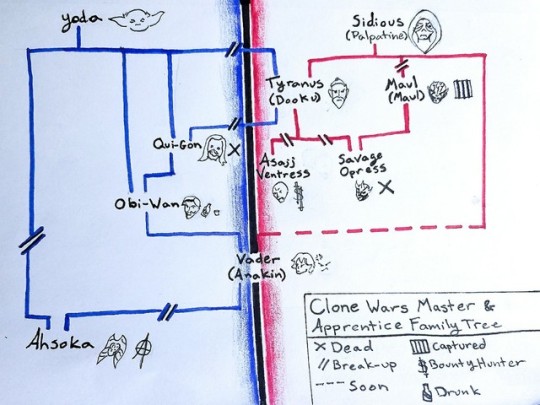 yoda
Sidious
(Palpatine)
Tyranus
(Dooku)
Maul
(Maul)
Qui-Gon
Asajj
Ventress
Savage
Opress
Obi-Wan
Vader
(Anakin)
Ahsoka
Clone Wars Master &
Apprentice Family Tree
X Dead
Captured
// Break-up
Bounty Hunter
--- Soon
Drunk